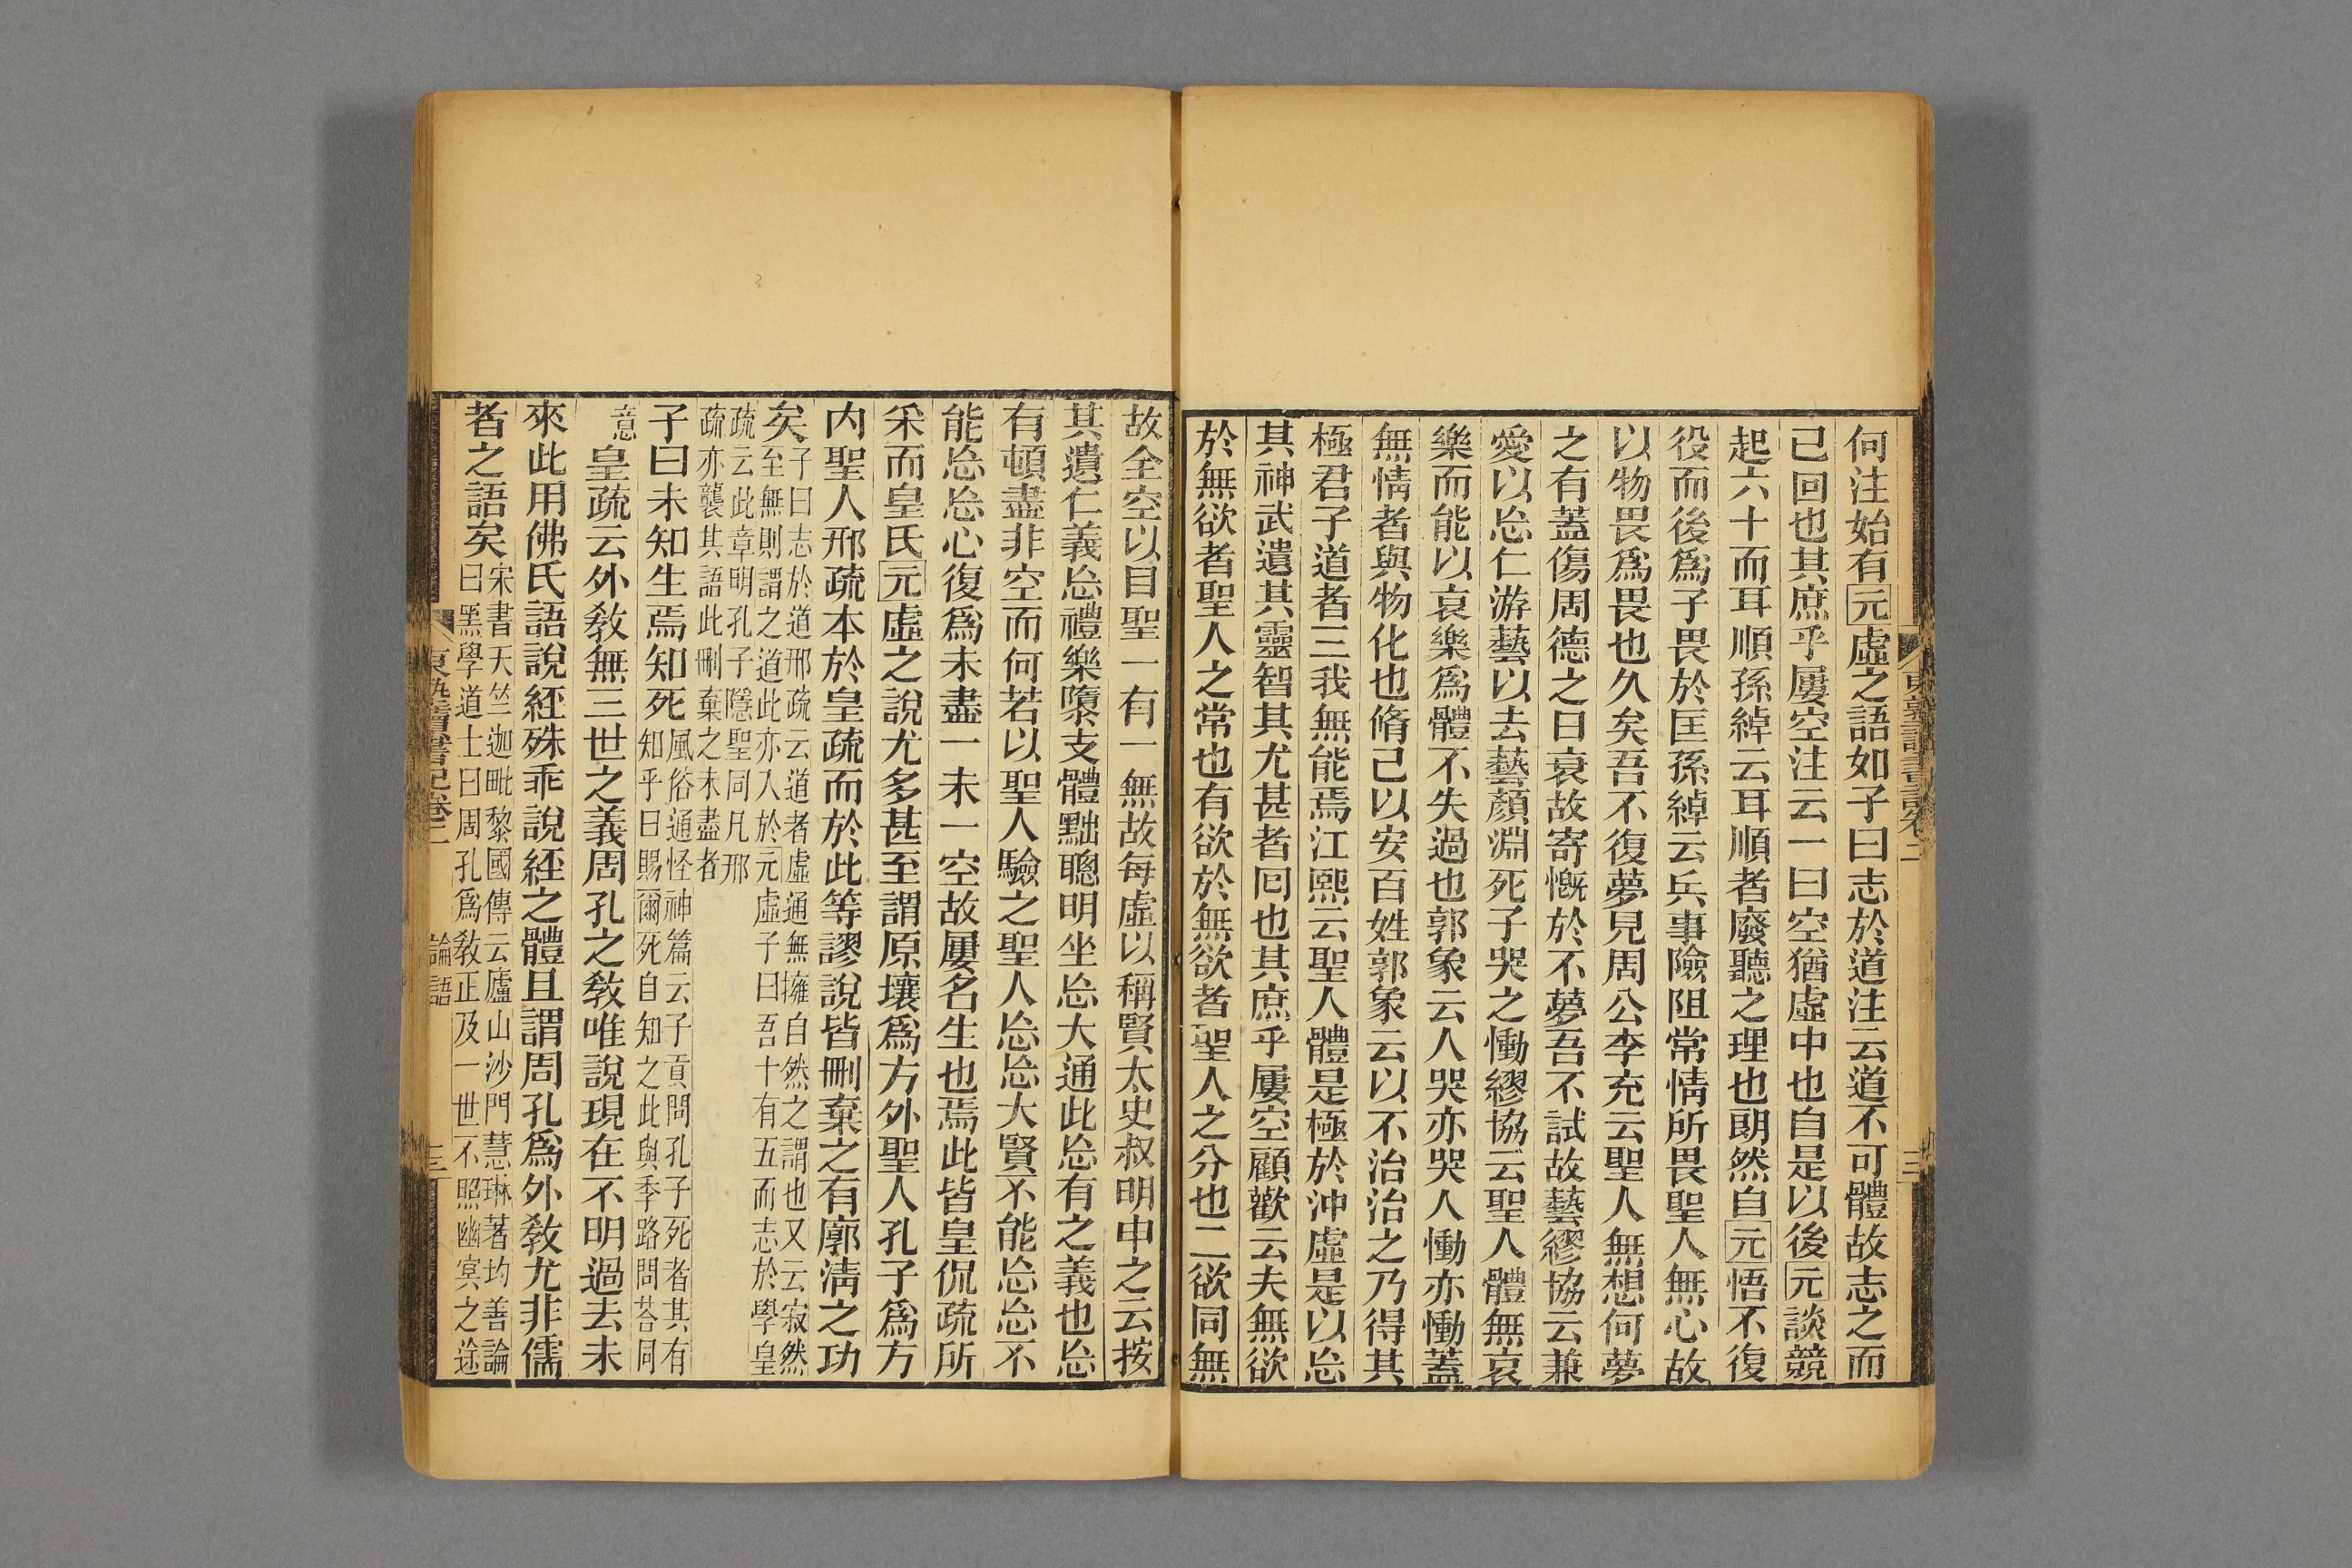 何注始有元虛之語如子曰志於道注云道不可體故志之而
已回也其庶乎屢空注云一曰空猶虛中也自是以後元談競
起六十而耳順孫綽云耳順者廢聽之理也朗然自元悟不復
役而後爲子畏於匡孫綽云兵事險阻常情所畏聖人無心故
以物畏爲畏也久矣吾不復夢見周公李充云聖人無想何夢
之有蓋傷周德之日衰故寄慨於不夢吾不試故藝繆協云兼
愛以忘仁游藝以去藝顏淵死子哭之慟繆協云聖人體無哀
樂而能以哀樂爲體不失過也郭象云人哭亦哭人慟亦慟蓋
無情者與物化也脩己以安百姓郭象云以不治治之乃得其
極君子道者三我無能焉江熙云聖人體是極於沖虛是以忘
其神武遺其靈智其尤甚者回也其庶乎屢空顧歡云夫無欲
於無欲者聖人之常也有欲於無欲者聖人之分也二欲同無
故全空以目聖一有一無故每虛以稱賢太史叔明申之云按
其遺仁義忘禮樂隳支體黜聰明坐忘大通此忘有之義也忘
有頓盡非空而何若以聖人驗之聖人忘忘大賢不能忘忘不
能忘忘心復爲未盡一未一空故屢名生也焉此皆皇侃疏所
采而皇氏元虛之說尤多甚至謂原壤爲方外聖人孔子爲方
內聖人邢疏本於皇疏而於此等謬說皆刪棄之有廓淸之功
矣子曰志於道邢疏云道者虛通無擁自然之謂也又云寂然
至無則謂之道此亦入於元虛子曰吾十有五而志於學皇
疏云此章明孔子隱聖同凡邢
疏亦襲其語此刪棄之未盡者
子曰未知生焉知死風俗通怪神篇云子貢問孔子死者其有
知乎曰賜爾死自知之此與季路問荅同
意皇疏云外敎無三世之義周孔之敎唯說現在不明過去未
來此用佛氏語說經殊乖說經之體且謂周孔爲外敎尤非儒
者之語矣宋書天竺迦毗黎國傳云廬山沙門慧琳著均善論
曰黑學道士曰周孔爲敎正及一世不照幽冥之途
東塾讀書記卷二
論語
三